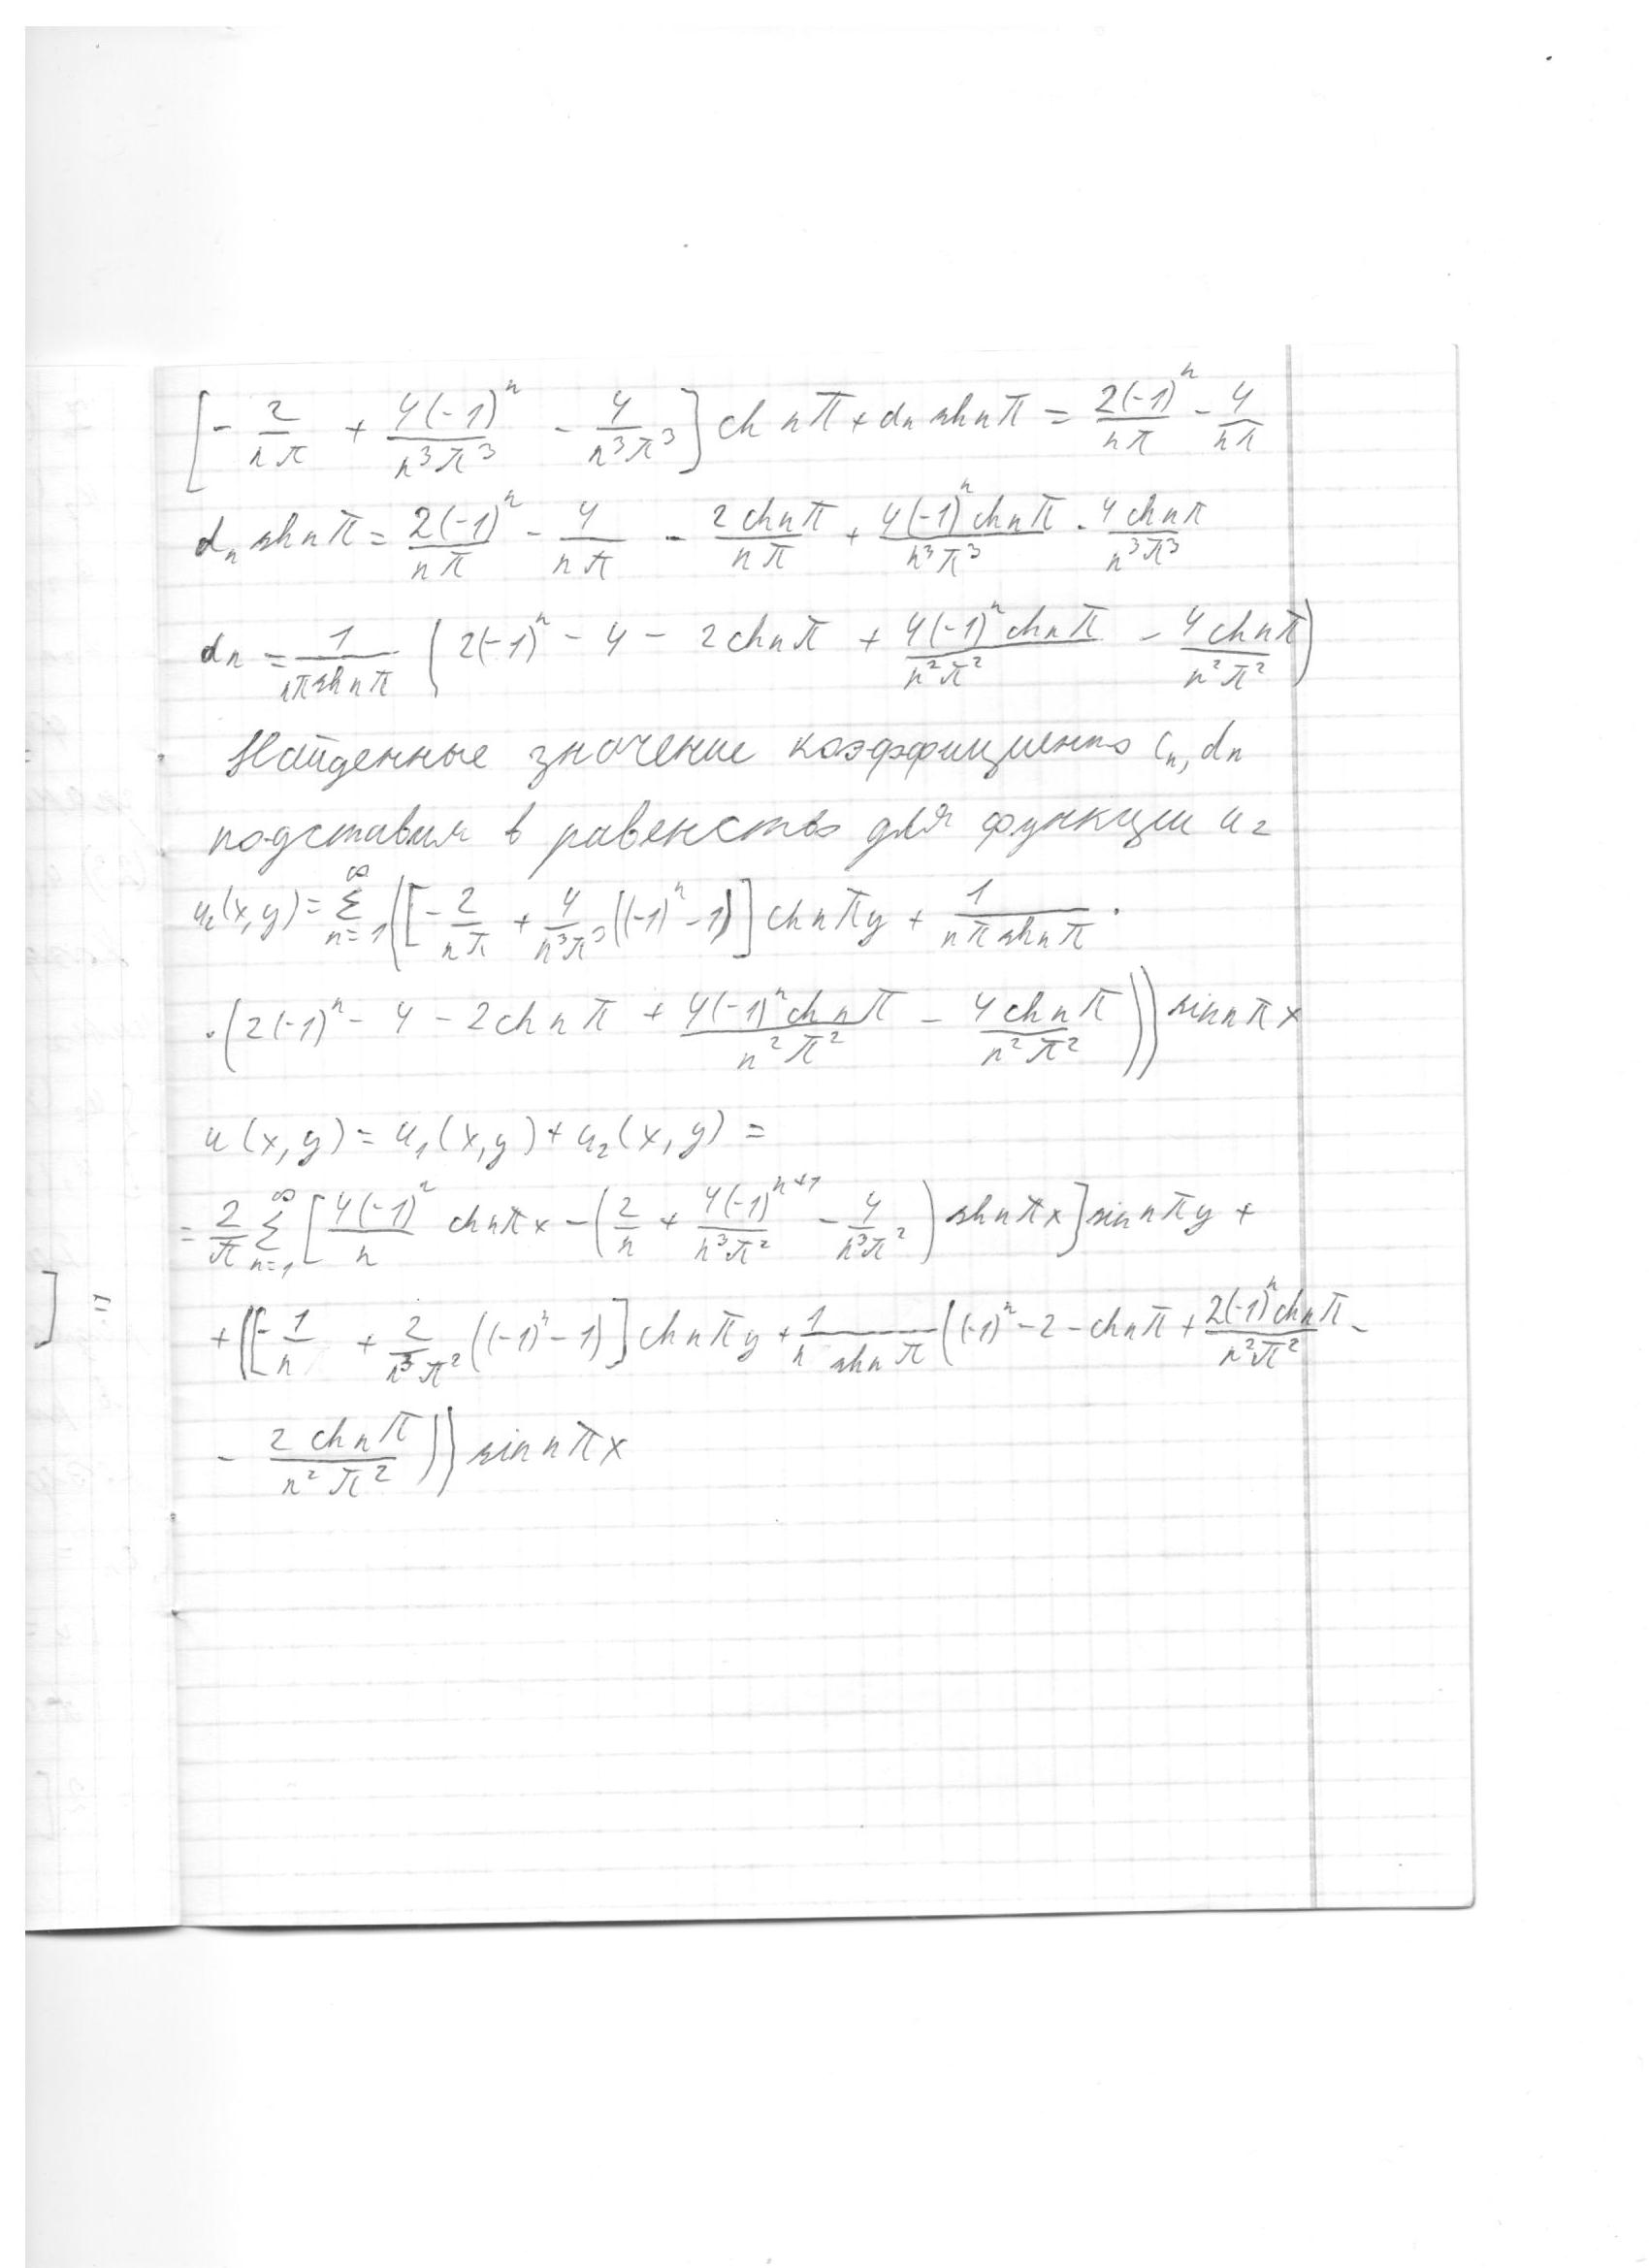 [- 2/(nπ) + 4(-1)^n/(n³π³) - 4/(n³π³)] ch nπ + dₙ sh nπ = 2(-1)^n/(nπ) - 4/(nπ)
dₙ sh nπ = 2(-1)^n/(nπ) - 4/(nπ) - 2 ch nπ/(nπ) + 4(-1)^n ch nπ/(n³π³) - 4 ch nπ/(n³π³)
dₙ = 1/(nπ sh nπ) (2(-1)^n - 4 - 2 ch nπ + 4(-1)^n ch nπ/(n²π²) - 4 ch nπ/(n²π²))
Найденные значение коэффициенто cₙ, dₙ
подставим в равенство для функции u₂
u₂(x,y) = ∑_{n=1}^∞ ([- 2/(nπ) + 4/(n³π³) ((-1)^n - 1)] ch nπy + 1/(nπ sh nπ) ·
· (2(-1)^n - 4 - 2 ch nπ + 4(-1)^n ch nπ/(n²π²) - 4 ch nπ/(n²π²))) sin nπx
u(x,y) = u₁(x,y) + u₂(x,y) =
= 2/π ∑_{n=1}^∞ [4(-1)^n/n ch nπx - (2/n + 4(-1)^{n+1}/(n³π²) - 4/(n³π²)) sh nπx] sin nπy +
+ ([- 1/n + 2/(n³π²) ((-1)^n - 1)] ch nπy + 1/(n sh nπ) ((-1)^n - 2 - ch nπ + 2(-1)^n ch nπ/(n²π²) -
- 2 ch nπ/(n²π²))) sin nπx
] =